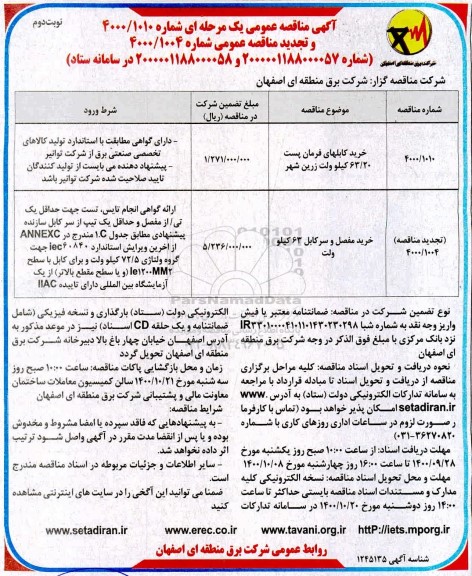 نوبت دوم
آگهی مناقصه عمومی یک مرحله ای شماره ۴۰۰۰/۱۰۱۰
و تجدید مناقصه عمومی شماره ۴۰۰۰/۱۰۰۴
(شماره ۲۰۰۰۰۰۱۱۸۸۰۰۰۰۵۷ و ۲۰۰۰۰۰۱۱۸۸۰۰۰۰۵۸ در سامانه ستاد)
شرکت برق منطقه ای اصفهان
شرکت مناقصه گزار: شرکت برق منطقه ای اصفهان
شماره مناقصه
موضوع مناقصه
مبلغ تضمین شرکت
در مناقصه (ریال)
شرط ورود
۴۰۰۰/۱۰۱۰
خرید کابلهای فرمان پست
۶۳/۲۰ کیلو ولت زرین شهر
۱/۲۷۱/۰۰۰/۰۰۰
- دارای گواهی مطابقت با استاندارد تولید کالاهای
تخصصی صنعتی برق از شرکت توانیر
- پیشنهاد دهنده می بایست از تولید کنندگان
تایید صلاحیت شده شرکت توانیر باشد
(تجدید مناقصه)
۴۰۰۰/۱۰۰۴
خرید مفصل و سرکابل ۶۳ کیلو
ولت
۵/۲۳۶/۰۰۰/۰۰۰
ارائه گواهی انجام تایپ، تست جهت حداقل یک
تی/ از مفصل و حداقل یک تیپ از سر کابل سازنده
پیشنهادی مطابق جدول C.۱ مندرج در ANNEXC
از آخرین ویرایش استاندارد iec۶۰۸۴۰ جهت
گروه ولتاژی ۷۲/۵ کیلو ولت و برای کابل با سطح
۱e۱۲۰۰MM۲ (و یا سطح مقطع بالاتر) از یک
آزمایشگاه بین المللی دارای تاییده IIAC
نوع تضمین شرکت در مناقصه: ضمانتنامه معتبر یا فیش
واریز وجه نقد به شماره شبا IR۳۳۰۱۰۰۰۰۴۱۰۱۱۰۱۴۳۰۲۳۰۲۹۸
نزد بانک مرکزی با مبلغ فوق الذکر در وجه شرکت برق منطقه
ای اصفهان
نحوه دریافت و تحویل اسناد مناقصه: کلیه مراحل برگزاری
مناقصه از دریافت و تحویل اسناد تا مبادله قرارداد با مراجعه
به سامانه تدارکات الکترونیکی دولت (ستاد) به آدرس www.
setadiran.ir امکان پذیر خواهد بود (تماس با کارفرما
ر صورت لزوم در ساعات اداری روزهای کاری با شماره
۰۳۱-۳۶۲۷۰۸۲۰)
مهلت دریافت اسناد: از ساعت ۱۰:۰۰ صبح روز یکشنبه مورخ
۱۴۰۰/۰۹/۲۸ تا ساعت ۱۶:۰۰ روز چهارشنبه مورخ ۱۴۰۰/۱۰/۰۸
مهلت و محل تحویل اسناد مناقصه: نسخه الکترونیکی کلیه
مدارک و مستندات اسناد مناقصه بایستی حداکثر تا ساعت
۱۴:۰۰ روز دوشنبه مورخ ۱۴۰۰/۱۰/۲۰ در سامانه تدارکات
الکترونیکی دولت (ستاد) بارگذاری و نسخه فیزیکی (شامل
ضمانتنامه و یک حلقه CD اسناد) نیز در موعد مذکور به
آدرس اصفهان خیابان چهار باغ بالا دبیرخانه شرکت برق
منطقه ای اصفهان تحویل گردد
زمان و محل بازگشایی پاکات مناقصه: ساعت ۱۰:۰۰ صبح روز
سه شنبه مورخ ۱۴۰۰/۱۰/۲۱ سالن کمیسیون معاملات ساختمان
معاونت مالی و پشتیبانی شرکت برق منطقه ای اصفهان
شرایط مناقصه:
- به پیشنهادهایی که فاقد سپرده یا امضا مشروط و مخدوش
بوده و یا پس از انقضا مدت مقرر در آگهی واصل شود ترتیب
اثر داده نخواهد شد.
- سایر اطلاعات و جزئیات مربوطه در اسناد مناقصه مندرج
است.
ضمنا می توانید این آگخی را در سایت های اینترنتی مشاهده
کنید
httP://iets.mporg.ir www.tavani.org.ir www.erec.co.ir www.setadiran.ir
روابط عمومی شرکت برق منطقه ای اصفهان
شناسه آگهی ۱۲۴۵۱۳۵